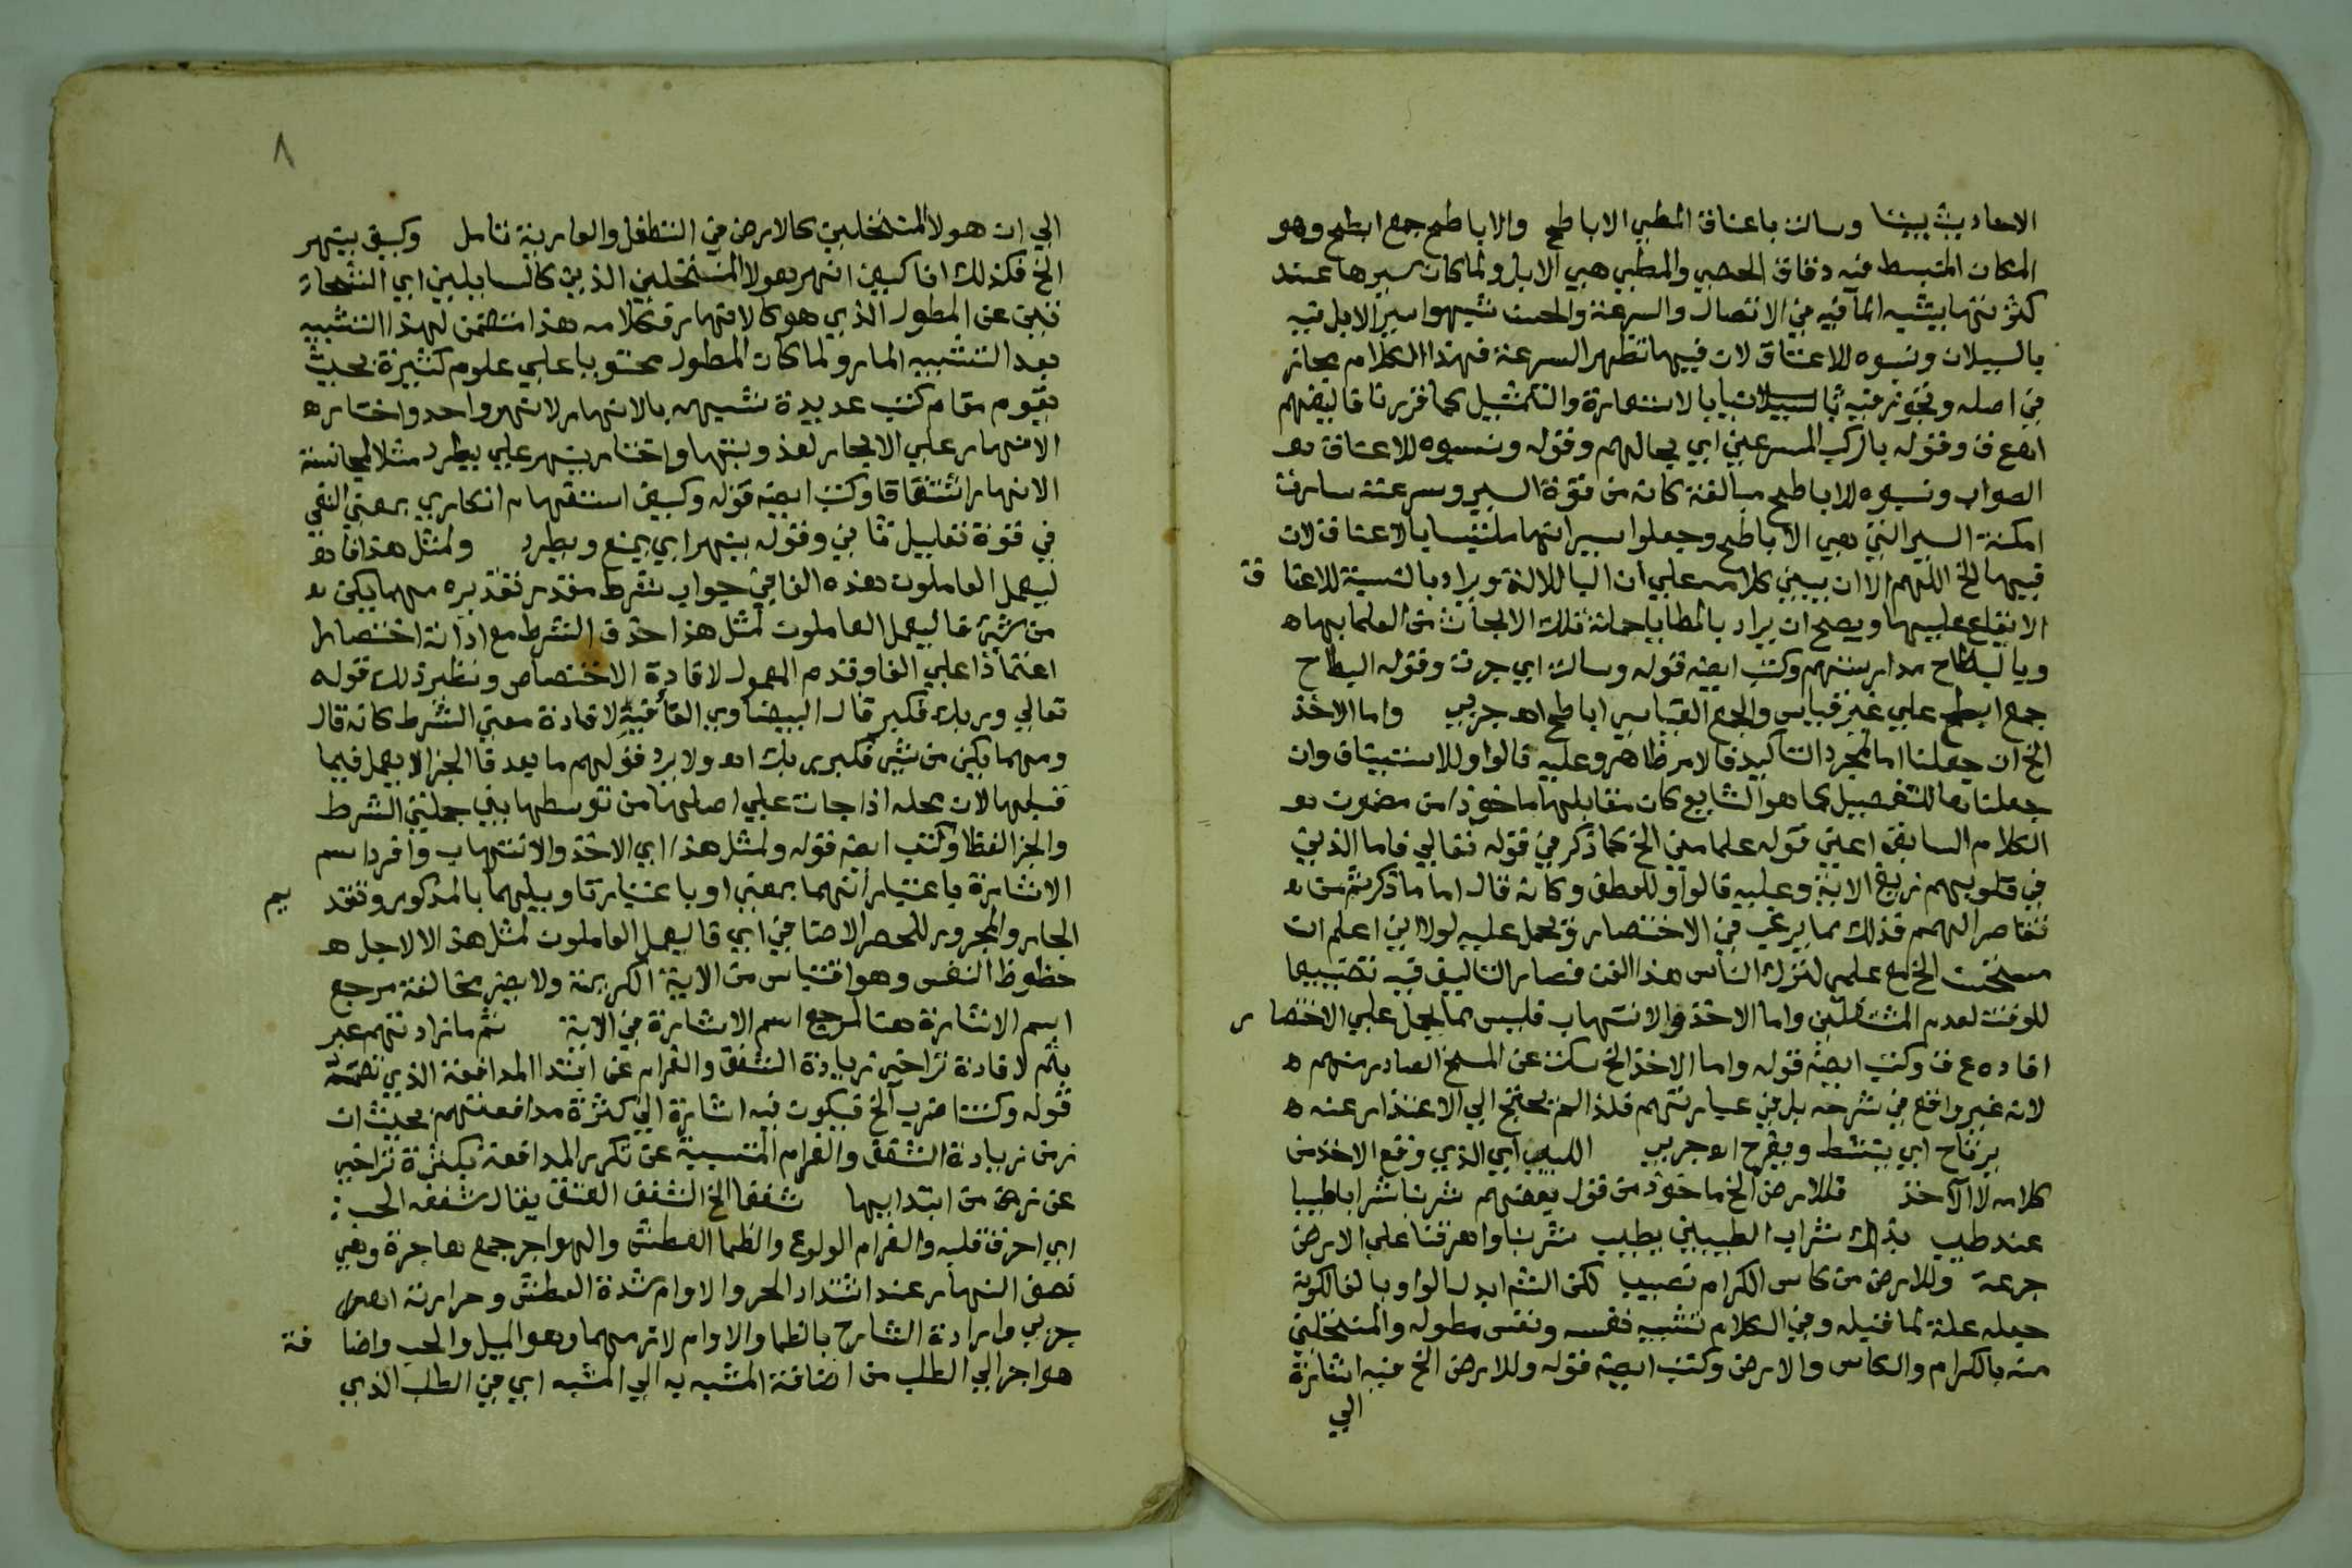 الاحاديث بيننا وسالت باعناق المطي الاباطح والاباطح جمع ابطح وهو
المكان المتبسط فيه دقاق الحصى والمطي هي الابل ولما كان سيرها عند
كثرتها يشبه الما فيه من الاتصال والسرعة والحث شبهوا سير الابل فيه
بالسيلان ونسبوه للاعناق لان فيها تظهر السرعة فهذا الكلام مجاز
في اصله وتجوز فيه بالسيلان بالاستعارة والتمثيل كما قررنا قاله بعضهم
اهـ ع ق وقوله بالركب المسرعين اي بحالهم وقوله ونسبوه للاعناق هو
الصواب ونسبوه للاباطح مبالغة كانه من قوة السير وسرعته سارت
امكنة السير التي هي الاباطح وجعلوا سيرانها ملتبسا بالاعناق لان
فيها الخ اللهم الا ان يبني كلامه على ان البا للالة ويراد بالنسبة للاعناق
الايقاع عليها ويصح ان يراد بالمطايا حملة تلك الابحاث من العلما بها
وبالبطاح مدارستهم وكتب ايضه قوله وسالت اي جرت وقوله البطاح
جمع ابطح على غير قياس والجمع القياسي اباطح اهـ جربي واما الاخذ
الخ ان جعلنا اما لمجرد التاكيد فالامر ظاهر وعليه قالوا وللاستيناف وان
جعلناها للتفصيل كما هو الشايع كان مقابلها ماخوذا من مضمون
الكلام السابق اعني قوله علما مني الخ كما ذكر في قوله تعالى فاما الذين
في قلوبهم زيغ الاية وعليه قالوا وللعطف وكانه قال اما ما ذكرتم من
تقاصر الهمم فذلك مما يرغب في الاختصار ويحمل عليه لولا اني اعلم ان
مستحسن الخ مع علمي لترك الناس هذا الفن فصار التاليف فيه تضييعا
للوقت لعدم المشتغلين واما الاخذ والانتهاب فليس مما يحمل على الاختصار
افاده ع ق وكتب ايضه قوله واما الاخذ الخ سكت عن المسخ الصادر منهم
لانه غير واقع في شرحه بل في عبارتهم فلذا لم يحتج الى الاعتذار عنه
يرتاح اي ينشط ويفرح اهـ جربي اللبيب اي الذي وقع الاخذ من
كلامه لا الآخذ فللارض الخ ماخوذ من قول بعضهم شربنا شرابا طيبا
عند طيب كذاك شراب الطيبين يطيب شربنا واهرقنا على الارض
جرعة وللارض من كاس الكرام نصيب لكن الشم ابدل الواو بالفا لكونه
جعله علة لما قبله وفي الكلام تشبيه نفسه ونفس مطوله والمنتحلين
منه بالكرام والكاس والارض وكتب ايضه قوله وللارض الخ فيه اشارة
الى
٨
الى ان هولا المنتحلين كالارض في التطفل والعارية تامل وكيف ينهر
الخ فكذلك انا كيف انهر هولا المنتحلين الذين كالسايلين اي الشحاذ
نين عن المطول الذي هو كالانهار فكلامه هذا متضمن لهذا التشبيه
بعد التشبيه المار ولما كان المطول محتويا على علوم كثيرة بحيث
يقوم مقام كتب عديدة شبهه بالانهار لا نهر واحد واختار
الانهار على الابحار لعذوبتها واختار ينهر على يطرد مثلا لمجانسة
الانهار اشتقاقا وكتب ايضه قوله وكيف استفهام انكاري بمعنى النفي
في قوة تعليل ثان وقوله ينهر اي يمنع ويطرد ولمثل هذا فا
ليعمل العاملون هذه الفا في جواب شرط مقدر تقديره مهما يكن
من شي فاليعمل العاملون لمثل هذا حذف الشرط مع اداته اختصارا
اعتمادا على الفا وقدم المعمول لافادة الاختصاص ونظير ذلك قوله
تعالى وربك فكبر قال البيضاوي الفا فيه لافادة معنى الشرط كانه قال
ومهما يكن من شي فكبر ربك اهـ ولا يرد قولهم ما بعد فا الجزا لا يعمل فيما
قبلها لان محله اذا جات على اصلها من توسطها بين جملتي الشرط
والجزا لفظا وكتب ايضه قوله ولمثل هذا اي الاخذ والانتهاب وافرد اسم
الاشارة باعتبار انهما بمعنى او باعتبار تاويلهما بالمذكور وتقد يم
الجار والمجرور للحصر الاضافي اي فاليعمل العاملون لمثل هذا لا لاجل
حظوظ النفس وهو اقتباس من الاية الكريمة ولا يضر مخالفة مرجع
اسم الاشارة هنا لمرجع اسم الاشارة في الاية ثم ما زادتهم عبر
بثم لافادة تراخي زيادة الشغف والغرام عن ابتدا المدافعة الذي تضمنه
قوله وكنت اضرب الخ فيكون فيه اشارة الى كثرة مدافعتهم بحيث ان
زمن زيادة الشغف والغرام المتسببة عن تكرير المدافعة بكثرة تراخى
عن زمن من ابتدايها شغفا الخ الشغف العشق يقال شغفه الحب
اي احرق قلبه والغرام الولوع والظما العطش والهواجر جمع هاجرة وهي
نصف النهار عند اشتداد الحر والاوام شدة العطش وحرارته اهـ
جربي وارادة الشارح بالظما والاوام لازمهما وهو الميل والحب واضافة
هواجر الى الطلب من اضافة المشبه به الى المشبه اي في الطلب الذي